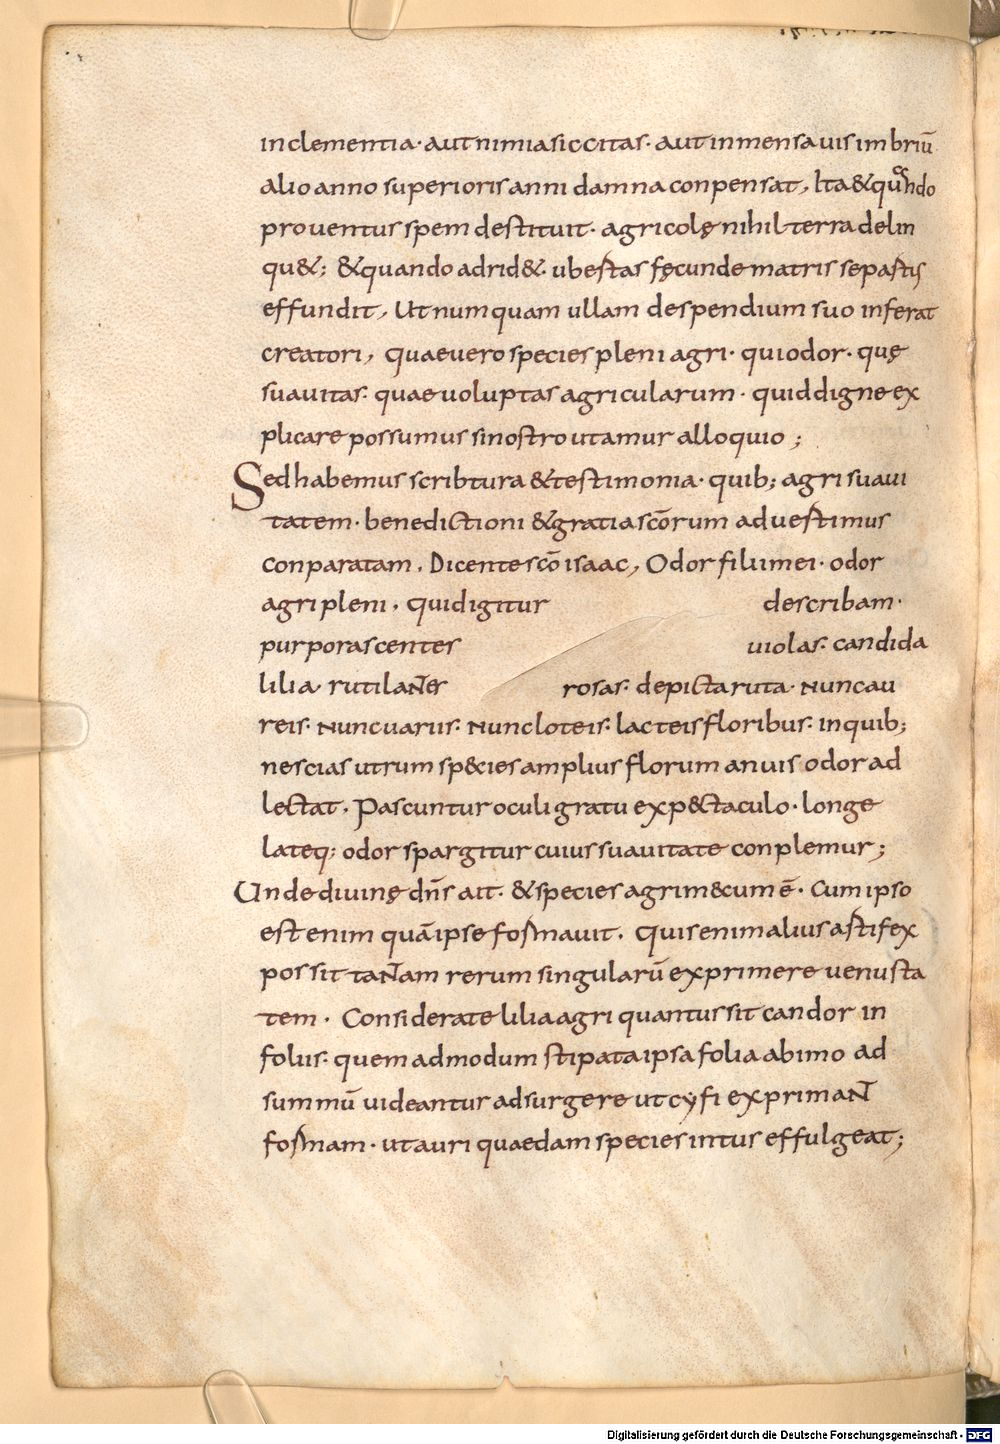 inclementia· aut nimia siccitas· aut inmensa uis imbriū
alio anno superioris anni damna conpensat, Ita & quando
prouentus spem destituit· agricolę nihil terra delin
qu&; & quando adrid&· ubestas fęcunde matris se pastis
effundit, Ut numquam ullam despendium suo inferat
creatori, quae uero species pleni agri· qui odor· quę
suauitas· quae uoluptas agricularum· quid digne ex
plicare possumus si nostro utamur alloquio;
Sed habemus scribtura & testimonia· quib; agri suaui
tatem· benedictioni & gratia scōrum aduestimus
conparatam. Dicente scō isaac, Odor filii mei· odor
agri pleni. quid igitur describam·
purporascentes uiolas· candida
lilia· rutilantes rosas· depicta ruta· nunc au
reis· nunc uariis· nunc loteis· lacteis floribus· in quib;
nescias utrum sp&cies amplius florum an uis odor ad
lectat. Pascuntur oculi gratu exp&ctaculo· longe
lateq; odor spargitur cuius suauitate conplemur;
Unde diuinę dn̄s ait· & species agri m&cum ē· Cum ipso
est enim quā ipse formauit. quis enim alius astifex
possit tantam rerum singularū exprimere uenusta
tem· Considerate lilia agri quantus sit candor in
foliis· quem admodum stipata ipsa folia ab imo ad
summū uideantur adsurgere ut cyfi exprimant
formam· ut auri quaedam species intus effulgeat;
Digitalisierung gefördert durch die Deutsche Forschungsgemeinschaft - DFG